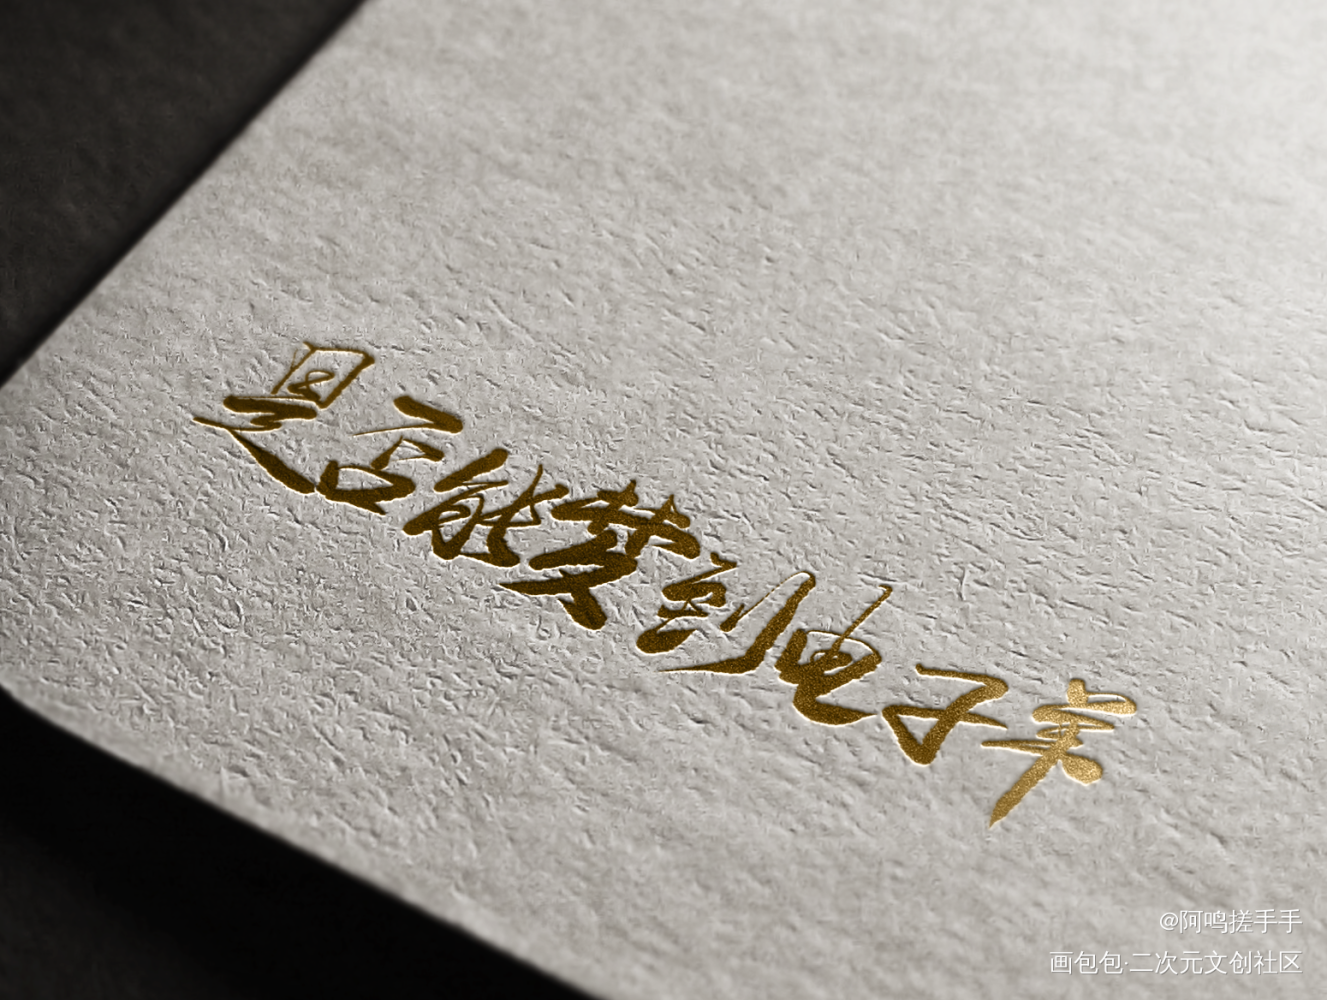 是否能梦到电子羊
@阿鸣搓手手
画包包·二次元文创社区